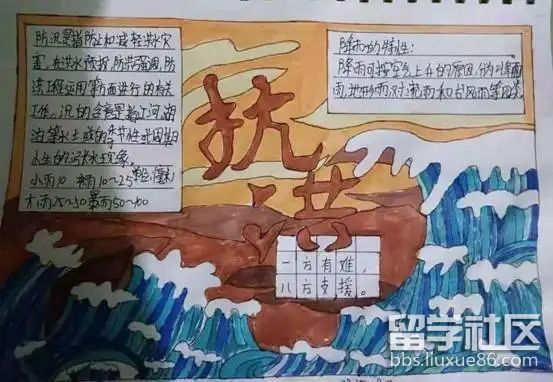 防汛是指防止和减轻洪水灾
害,在洪水预报,防洪强调,防
洪工程运用等面进行的有关
工作。汛的含意是指江河,湖
泊等水土或的季节性或周期
水生的涨水现象。
小雨10 中雨10~25 单位(毫米)
大雨25~50 暴雨50~100
降雨的特性:
降雨可按空气上升的原因,分为锋面
雨,地形雨,对流雨和台风雨等四类
抗
洪
一方有难,
八方支援。
留学社区
bbs.liuxue86.com